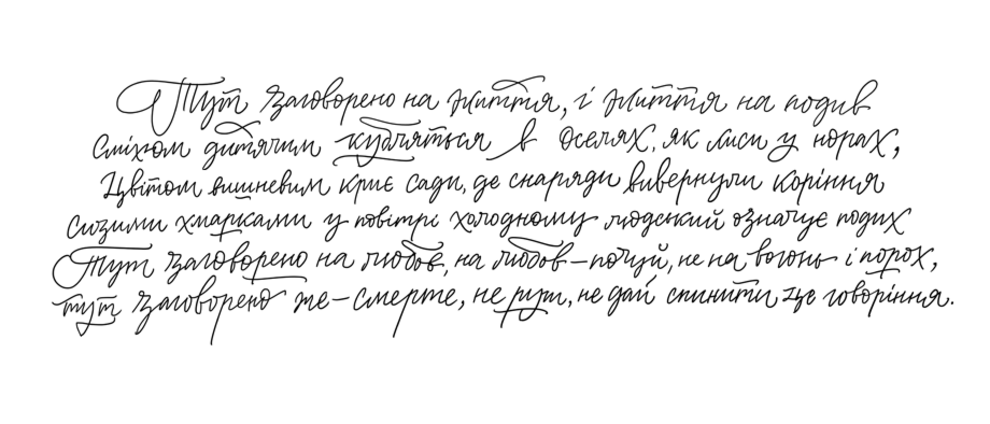 Тут заговорено на життя, і життя на подив
Сміхом дитячим кубляться в оселях, як лиси у норах,
Цвітом вишневим криє сади, де снаряди вивернули коріння
Сизими хмарками у повітрі холодному людський означує подих
Тут заговорено на любов, на любов – почуй, не на вогонь і порох,
тут заговорено же – смерте, не руш, не дай спинити це говоріння.